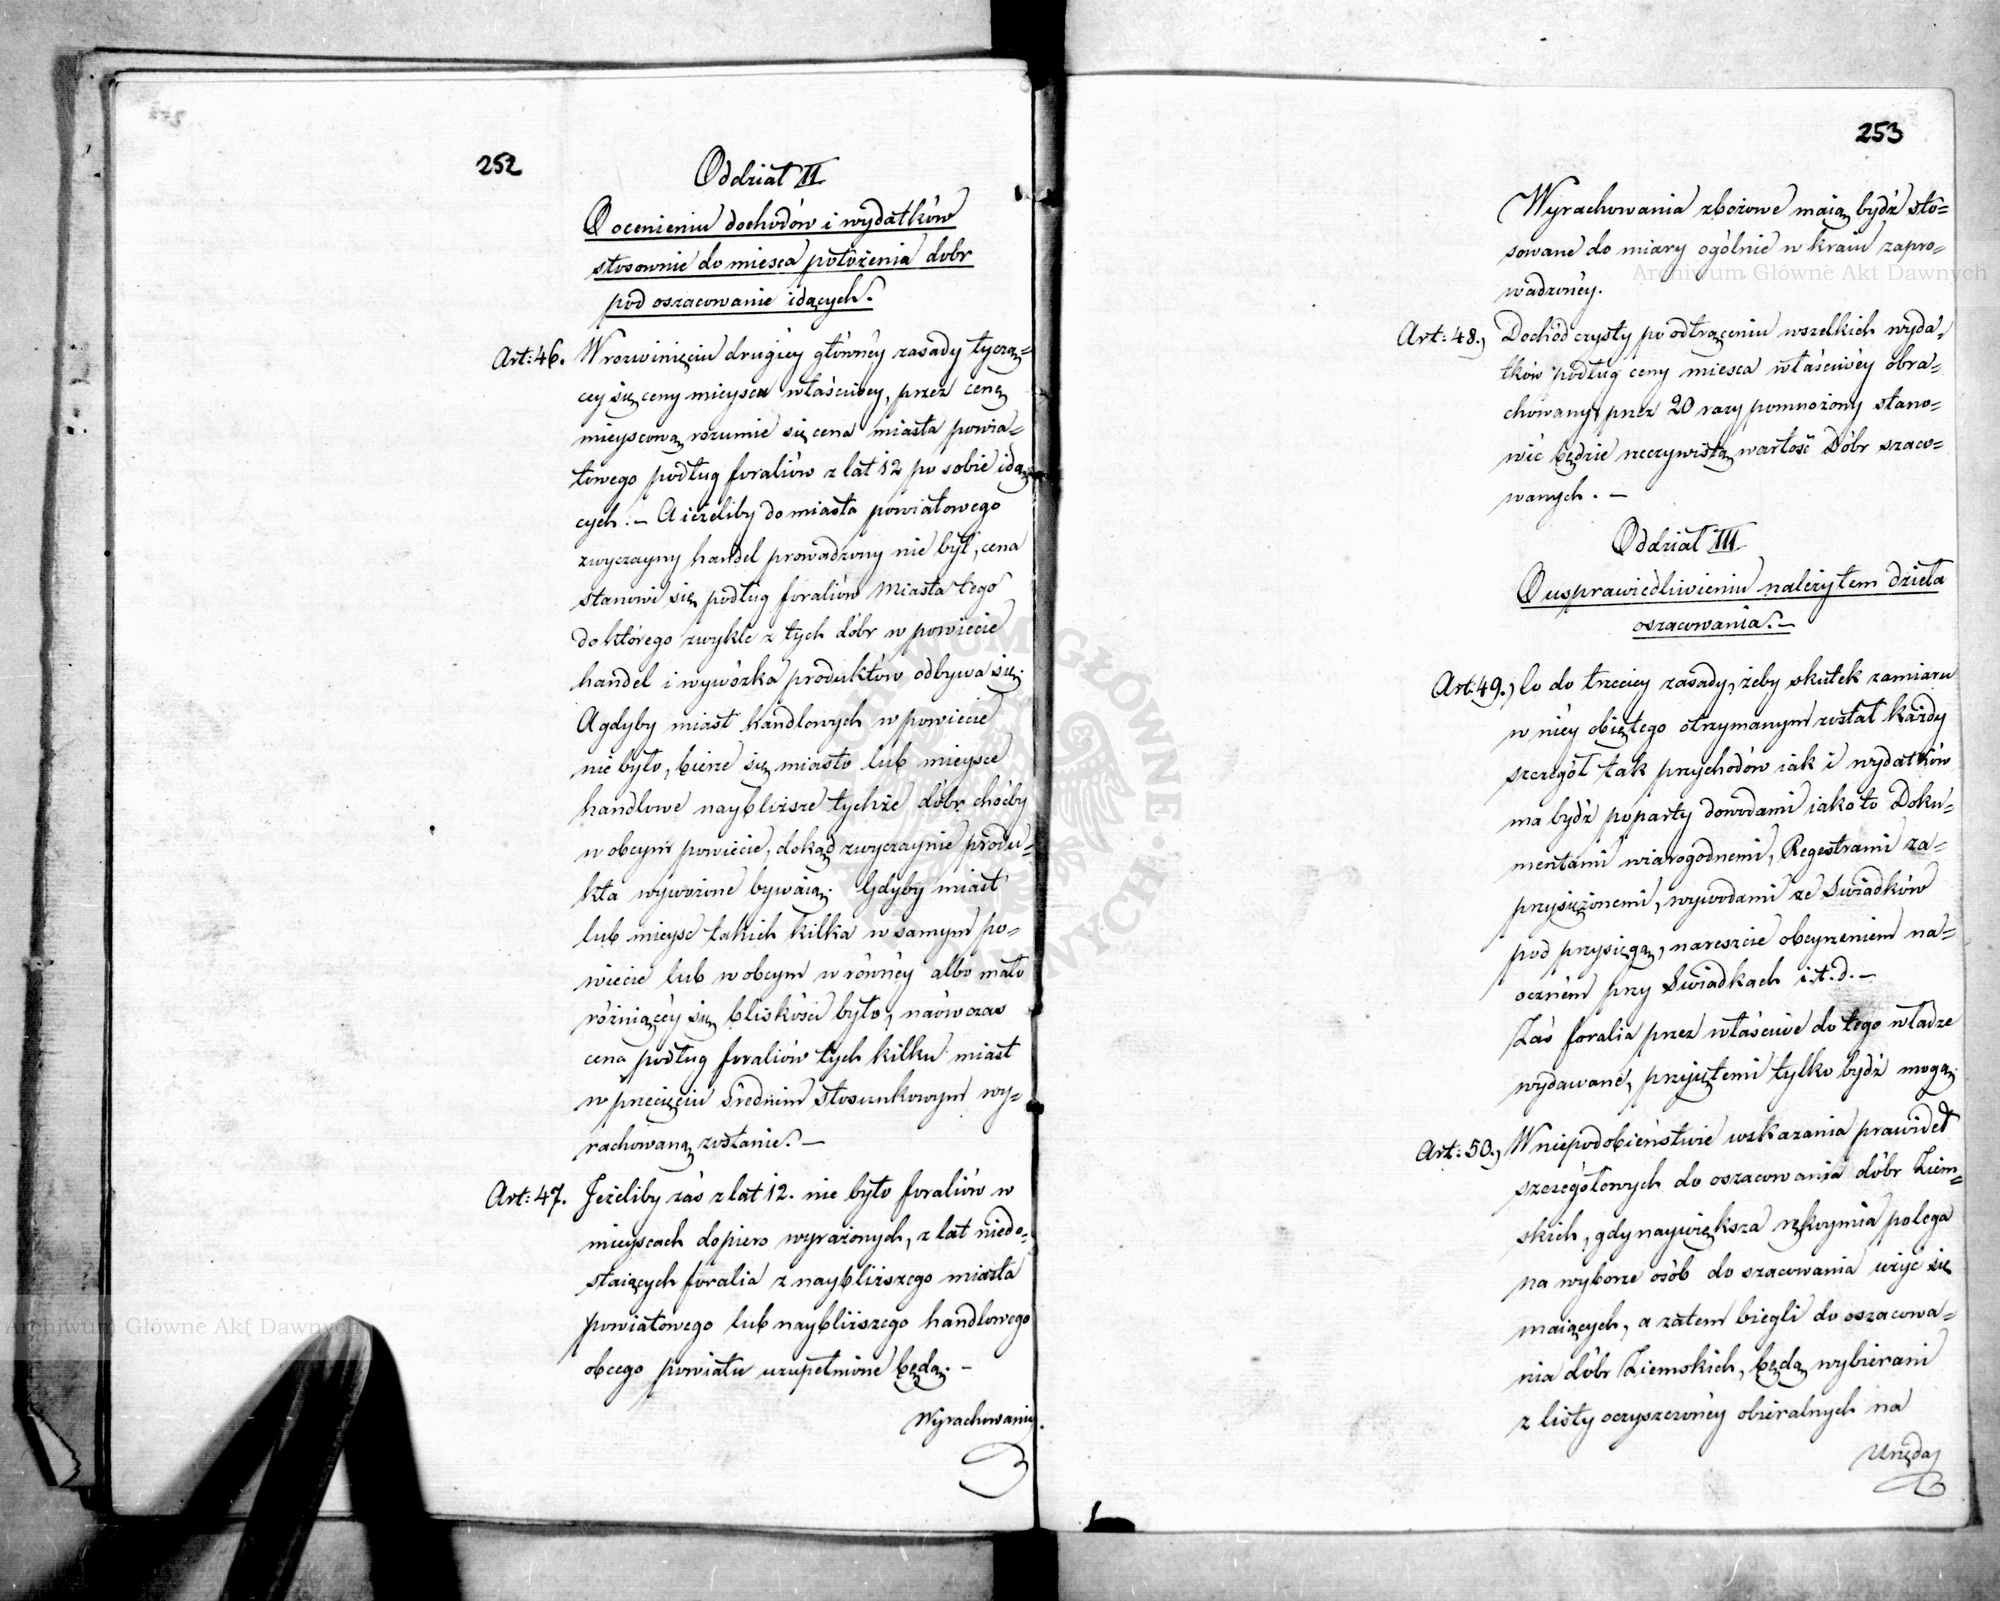 252
Oddział II
O ocenieniu dochodów i wydatków
stosownie do miesca położenia dobr
pod oszacowanie idących.
Art: 46. W rozwinięciu drugiey głównéy zasady tyczą=
cey się ceny mieysca właściwey, przez cenę
mieyscową rozumie się cena miasta powia=
towego podług foraliów z lat 12 po sobie idą
cych. – A ieżeliby do miasta powiatowego
zwyczayny handel prowadzony nie był, cena
stanowi się podług foraliów Miasta tego
do którego zwykle z tych dóbr w powiecie
handel i wywózka produktów odbywa się.
A gdyby miast handlowych w powiecie
nie było, bierze się miasto lub mieysce
handlowe naybliższe tychże dóbr choćby
w obcym powiecie, dokąd zwyczaynie produ=
kta wywożone bywaią. Gdyby miast
lub mieysc takich kilka w samym po=
wiecie lub w obcym w równéy albo mało
różniącéy się bliskości było, naówczas
cena podług foraliów tych kilku miast
w przecięciu średnim stosunkowym wy=
rachowaną zostanie. –
Art: 47. Jeżeliby zaś z lat 12. nie było foraliów w
mieyscach dopiero wyrażonych, z lat niedo=
staiących foralia z naybliższego miasta
powiatowego lub naybliższego handlowego
obcego powiatu uzupełnione będą. –
Wyrachowania
253
Wyrachowania zbożowe maią bydź sto=
sowane do miary ogólnie w kraiu zapro=
wadzonéy.
Art: 48., Dochód czysty po odtrąceniu wszelkich wyda=
tków podług ceny miesca właściwéy obra=
chowany, przez 20 razy pomnożony stano=
wić będzie rzeczywistą wartość Dóbr szaco=
wanych. –
Oddział III
O usprawiedliwieniu należytem dzieła
oszacowania. –
Art: 49., Co do trzeciey zasady, żeby skutek zamiaru
w niéy obiętego otrzymanym został każdy
szczegół tak przychodów iak i wydatków
ma bydź poparty dowodami iako to Doku=
mentami wiarogodnemi, Regestrami za=
przysiężonemi, wywodami ze Swiadków
pod przysięgą, nareszcie obeyrzeniem na=
oczném przy Swiadkach i.t.d. –
Zaś foralia przez właściwe do tego władze
wydawané, przyjętemi tylko bydź mogą.
Art: 50., W niepodobieństwie wskazania prawideł
szczegółowych do oszacowania dóbr Ziem=
skich, gdy naywiększa rękoymia polega
na wyborze osób do szacowania użyć się
maiących, a zatem biegli do oszacowa=
nia dóbr Ziemskich, będą wybierani
z listy oczyszczonéy obieralnych na
Urzęda
Archiwum Główne Akt Dawnych
Archiwum Główne Akt Dawnych
ARCHIWUM GŁÓWNE AKT DAWNYCH